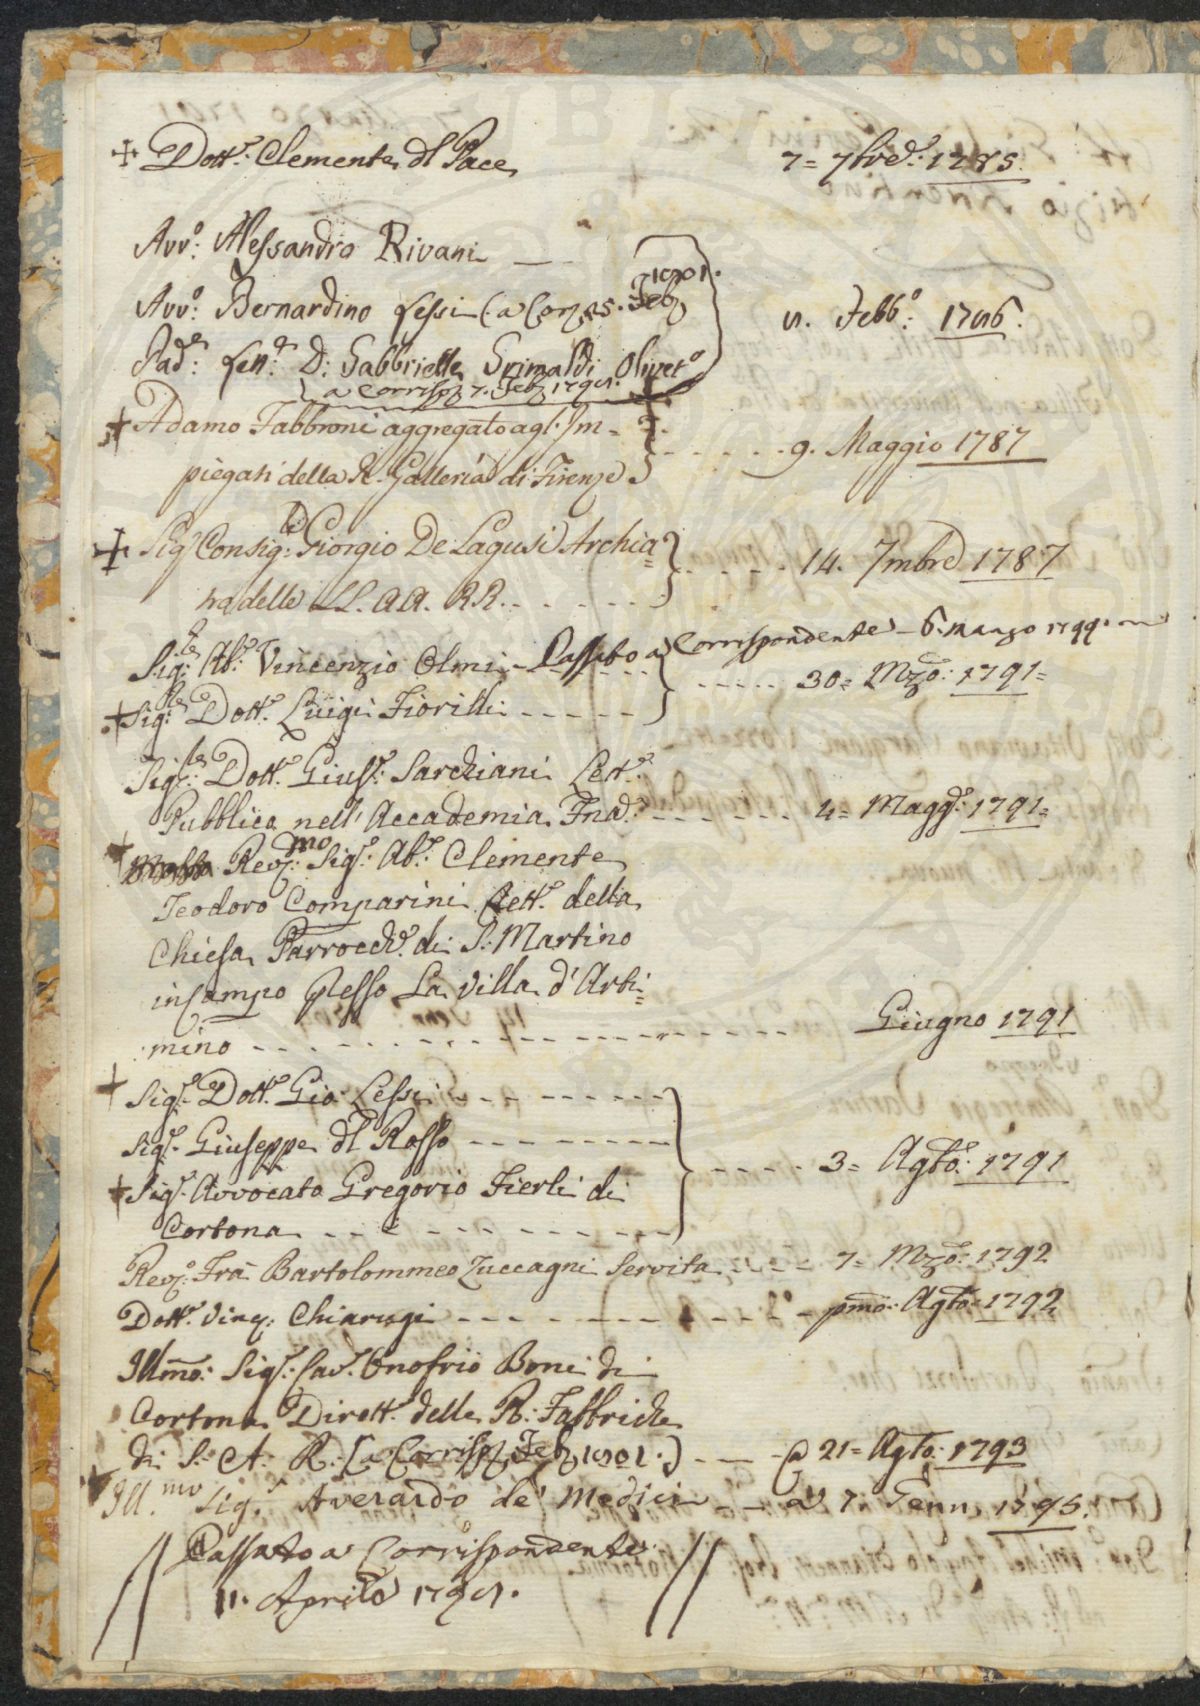 + Dott.e Clemente dl Pace 7= 7bre: 1785.
Avv.o: Alessandro Rivani
Avv.o Bernardino Lessi (a Corr. Feb.
Pad.e: D: Gabbriello Grimaldi Olivet.o 5. Febb.o: 1786.
a Corrisp. 7. Feb.
+ Adamo Fabbroni aggregato agl'Im=
piegati della R. Galleria di Firenze 9. Maggio 1787
+ Sig. Consig.re Giorgio De Lagusi Archia=
tra delle LL. AA. RR. 14. 7mbre 1787
Sig.re Ab.e Vincenzio Olmi - Passato a Corrispondente - 6. Marzo 1799.
+ Sig.re Dott.e Luigi Fiorilli 30= Mzo: 1791=
Sig.re: Dott.e Gius.e: Sarchiani Lett.e
Pubblico nell'Accademia Fna. 4= Magg.o: 1791=
+ Rev.mo: Sig.e: Ab.e: Clemente
Teodoro Comparini Rett.e della
Chiesa Parrocch.e di S: Martino
in Campo presso La Villa d'Arti=
mino Giugno 1791
+ Sig.e Dott.e Gio: Lessi
Sig.e Giuseppe dl Rosso
+ Sig.e Avvocato Gregorio Fierli di 3= Agto.: 1791
Cortona
Rev.o: Fra Bartolommeo Zuccagni Servita 7= Mzo: 1792
Dott.e Vinc: Chiarugi pmo: Agto: 1792
Illmo: Sig.e: Cav.e: Onofrio Boni di
Cortona Dirett.e delle R: Fabbriche
di S: A: R: (a Corrisp. Feb. 1801.) a 21= Agto: 1793
Ill.mo Sig.r Averardo de' Medici a' 7. Genn. 1795.
Passato a Corrispondente
11. Aprile